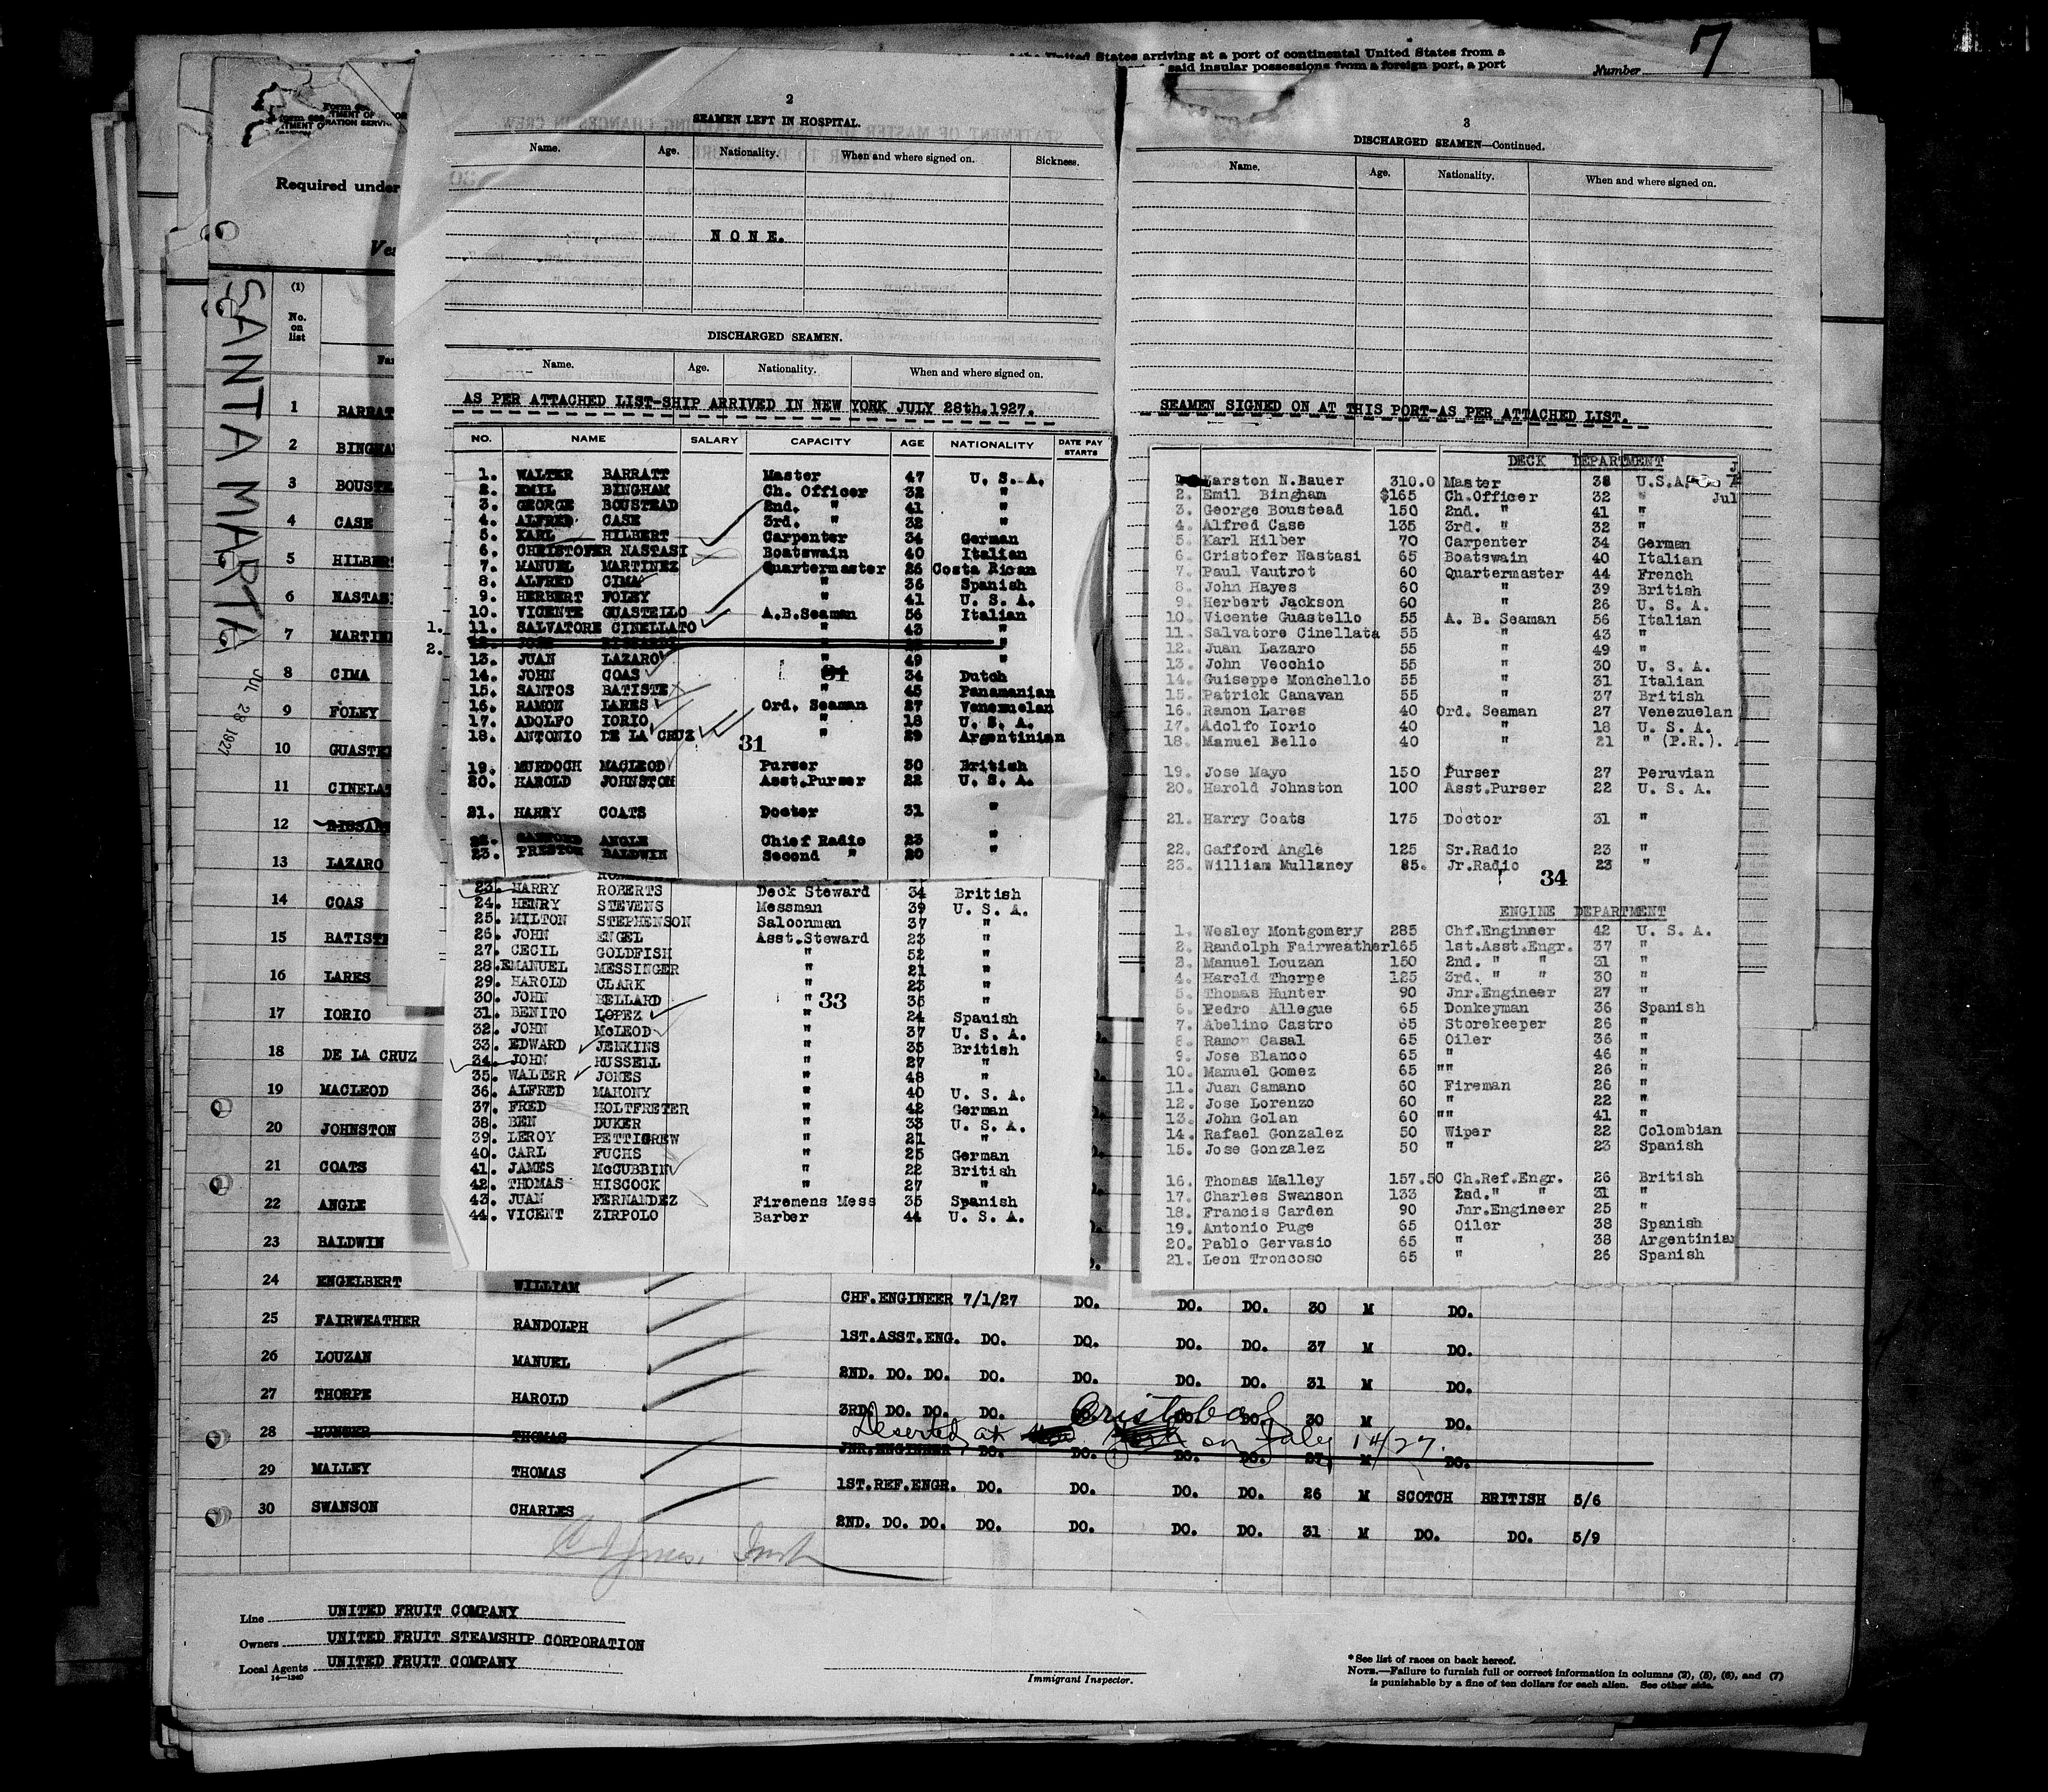 the United States arriving at a port of continental United States from a
said insular possessions from a foreign port, a port
Number 7
Required under
SANTA MARTA
JUL 28 1927
(1)
No. on list
1 BARRAT
2 BINGHAM
3 BOUSTE
4 CASE
5 HILBER
6 NASTAS
7 MARTINE
8 CIMA
9 FOLEY
10 GUASTE
11 CINELA
12
13 LAZARO
14 COAS
15 BATISTE
16 LARES
17 IORIO
18 DE LA CRUZ
19 MACLEOD
20 JOHNSTON
21 COATS
22 ANGLE
23 BALDWIN
2
SEAMEN LEFT IN HOSPITAL.
Name. Age. Nationality. When and where signed on. Sickness.
NONE.
DISCHARGED SEAMEN.
Name. Age. Nationality. When and where signed on.
AS PER ATTACHED LIST-SHIP ARRIVED IN NEW YORK JULY 28th.1927.
NO. NAME SALARY CAPACITY AGE NATIONALITY DATE PAY STARTS
1. WALTER BARRATT Master 47 U. S. A.
2. EMIL BINGHAM Ch. Officer 32 "
3. GEORGE BOUSTEAD 2nd. " 41 "
4. ALFRED CASE 3rd. " 32 "
5. KARL HILBERT Carpenter 34 German
6. CHRISTOFER NASTASI Boatswain 40 Italian
7. MANUEL MARTINEZ Quartermaster 26 Costa Rican
8. ALFRED CIMA " 36 Spanish
9. HERBERT FOLEY " 41 U. S. A.
10. VICENTE GUASTELLO A.B.Seaman 56 Italian
1. 11. SALVATORE CINELLATO " 43 "
2.
13. JUAN LAZARO " 49 "
14. JOHN COAS " 34 Dutch
15. SANTOS BATISTE " 45 Panamanian
16. RAMON LARES Ord. Seaman 27 Venezuelan
17. ADOLFO IORIO " 18 U. S. A.
18. ANTONIO DE LA CRUZ " 29 Argentinian
31
19. MURDOCH MACLEOD Purser 30 British
20. HAROLD JOHNSTON Asst.Purser 22 U. S. A.
21. HARRY COATS Doctor 31 "
22. ANGLE Chief Radio 23 "
23. PRESTON BALDWIN Second " 20 "
23. HARRY ROBERTS Deck Steward 34 British
24. HENRY STEVENS Messman 39 U. S. A.
25. MILTON STEPHENSON Saloonman 37 "
26. JOHN ENGEL Asst.Steward 23 "
27. CECIL GOLDFISH " 52 "
28. EMANUEL MESSINGER " 21 "
29. HAROLD CLARK " 23 "
30. JOHN BELLARD " 35 "
33
31. BENITO LOPEZ " 24 Spanish
32. JOHN McLEOD " 37 U. S. A.
33. EDWARD JENKINS " 35 British
34. JOHN RUSSELL " 27 "
35. WALTER JONES " 48 "
36. ALFRED MAHONY " 40 U. S. A.
37. FRED HOLTFRETER " 42 German
38. BEN DUKER " 33 U. S. A.
39. LEROY PETTIGREW " 21 "
40. CARL FUCHS " 25 German
41. JAMES McCUBBIN " 22 British
42. THOMAS HISCOCK " 27 "
43. JUAN FERNANDEZ Firemens Mess 35 Spanish
44. VICENT ZIRPOLO Barber 44 U. S. A.
3
DISCHARGED SEAMEN—Continued.
Name. Age. Nationality. When and where signed on.
SEAMEN SIGNED ON AT THIS PORT-AS PER ATTACHED LIST.
DECK DEPARTMENT
Karston N.Bauer 310.0 Master 38 U.S.A.
2. Emil Bingham $165 Ch.Officer 32 " Jul
3. George Boustead 150 2nd. " 41 "
4. Alfred Case 135 3rd. " 32 "
5. Karl Hilber 70 Carpenter 34 German
6. Cristofer Nastasi 65 Boatswain 40 Italian
7. Paul Vautrot 60 Quartermaster 44 French
8. John Hayes 60 " 39 British
9. Herbert Jackson 60 " 26 U. S. A.
10. Vicente Guastello 55 A. B. Seaman 56 Italian
11. Salvatore Cinellata 55 " 43 "
12. Juan Lazaro 55 " 49 "
13. John Vecchio 55 " 30 U. S. A.
14. Guiseppe Monchello 55 " 31 Italian
15. Patrick Canavan 55 " 37 British
16. Ramon Lares 40 Ord. Seaman 27 Venezuelan
17. Adolfo Iorio 40 " 18 U. S. A.
18. Manuel Bello 40 " 21 " (P.R.).
19. Jose Mayo 150 Purser 27 Peruvian
20. Harold Johnston 100 Asst.Purser 22 U. S. A.
21. Harry Coats 175 Doctor 31 "
22. Gafford Angle 125 Sr.Radio 23 "
23. William Mullaney 85. Jr.Radio 23 "
34
ENGINE DEPARTMENT
1. Wesley Montgomery 285 Chf.Engineer 42 U. S. A.
2. Randolph Fairweather 165 1st.Asst.Engr. 37 "
3. Manuel Louzan 150 2nd. " " 31 "
4. Harold Thorpe 125 3rd. " " 30 "
5. Thomas Hunter 90 Jnr.Engineer 27 "
6. Pedro Allegue 65 Donkeyman 36 Spanish
7. Abelino Castro 65 Storekeeper 26 "
8. Ramon Casal 65 Oiler 36 "
9. Jose Blanco 65 " 46 "
10. Manuel Gomez 65 "" 26 "
11. Juan Camano 60 Fireman 26 "
12. Jose Lorenzo 60 " 22 "
13. John Golan 60 "" 41 "
14. Rafael Gonzalez 50 Wiper 22 Colombian
15. Jose Gonzalez 50 " 23 Spanish
16. Thomas Malley 157.50 Ch.Ref.Engr. 26 British
17. Charles Swanson 133 2nd." " 31 "
18. Francis Carden 90 Jnr.Engineer 25 "
19. Antonio Puge 65 Oiler 38 Spanish
20. Pablo Gervasio 65 " 38 Argentinian
21. Leon Troncoso 65 " 26 Spanish
24 ENGELBERT WILLIAM CHF.ENGINEER 7/1/27 DO. DO. DO. 30 M DO.
25 FAIRWEATHER RANDOLPH 1ST.ASST.ENG. DO. DO. DO. DO. 37 M DO.
26 LOUZAN MANUEL 2ND. DO. DO. DO. DO. DO. DO. 31 M DO.
27 THORPE HAROLD 3RD. DO. DO. DO. DO. DO. DO. 30 M DO.
Deserted at Cristobal on July 14/27.
28 HUNTER THOMAS JNR.ENGINEER DO. DO. DO. DO. 27 M DO.
29 MALLEY THOMAS 1ST.REF.ENGR. DO. DO. DO. DO. 26 M SCOTCH BRITISH 5/6
30 SWANSON CHARLES 2ND. DO. DO. DO. DO. DO. DO. 31 M DO. DO. 5/9
Line UNITED FRUIT COMPANY
Owners UNITED FRUIT STEAMSHIP CORPORATION
Local Agents UNITED FRUIT COMPANY
14—1240
Immigrant Inspector.
*See list of races on back hereof.
NOTE.—Failure to furnish full or correct information in columns (2), (5), (6), and (7)
is punishable by a fine of ten dollars for each alien. See other side.